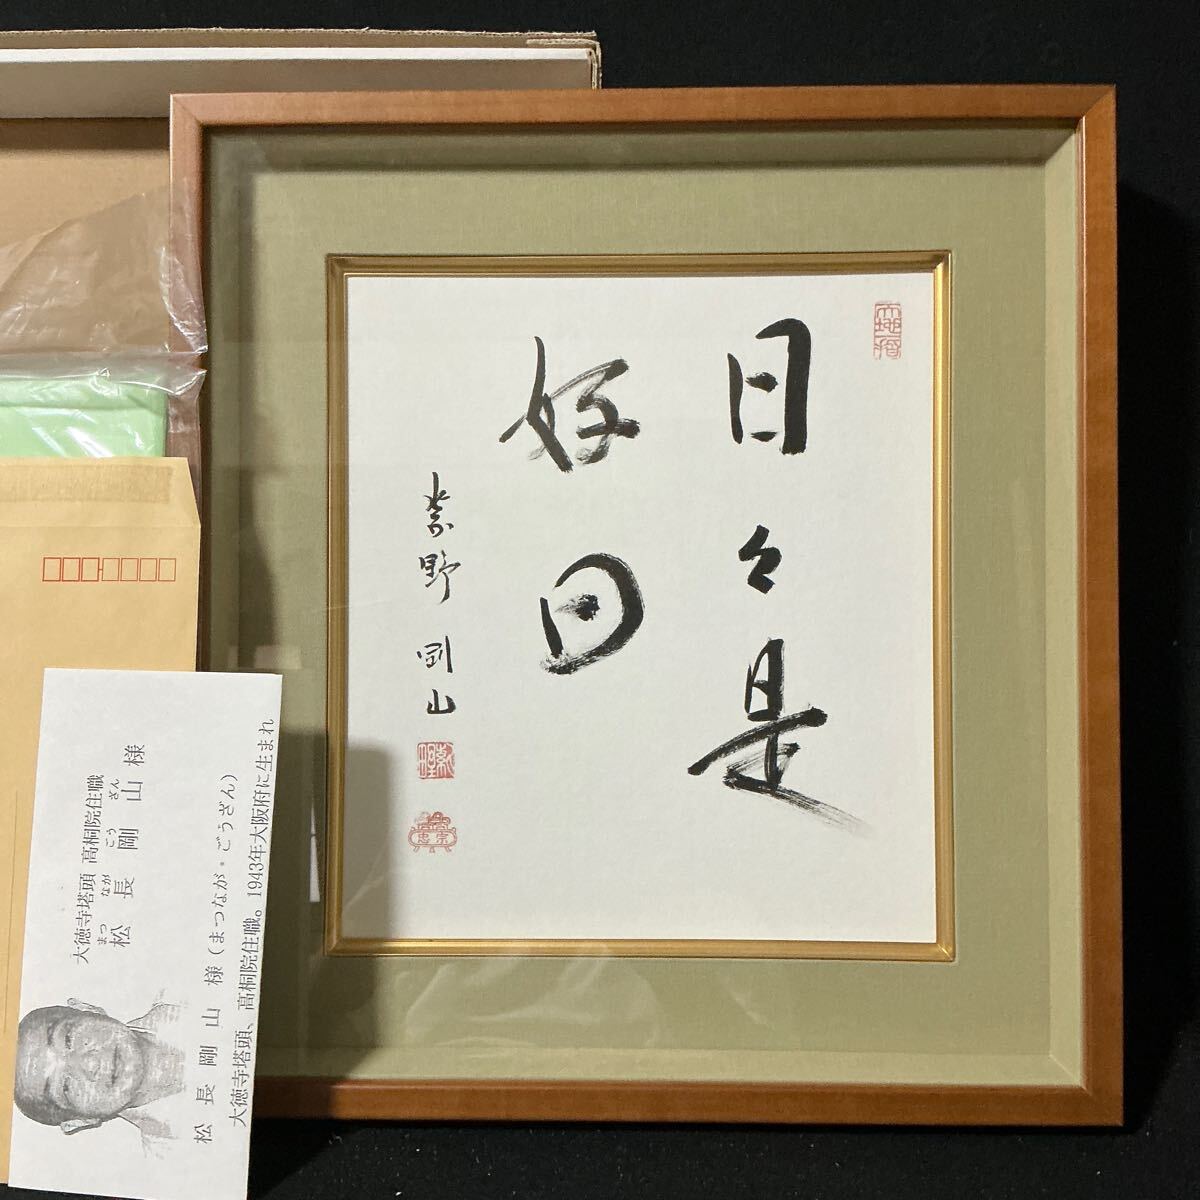 日々是
好日
紫野 剛山
大徳寺塔頭 高桐院住職
まつ なが ごう ざん
松長剛山様
松長剛山様(まつなが・ごうざん)
大徳寺塔頭、高桐院住職。1943年大阪府に生まれ